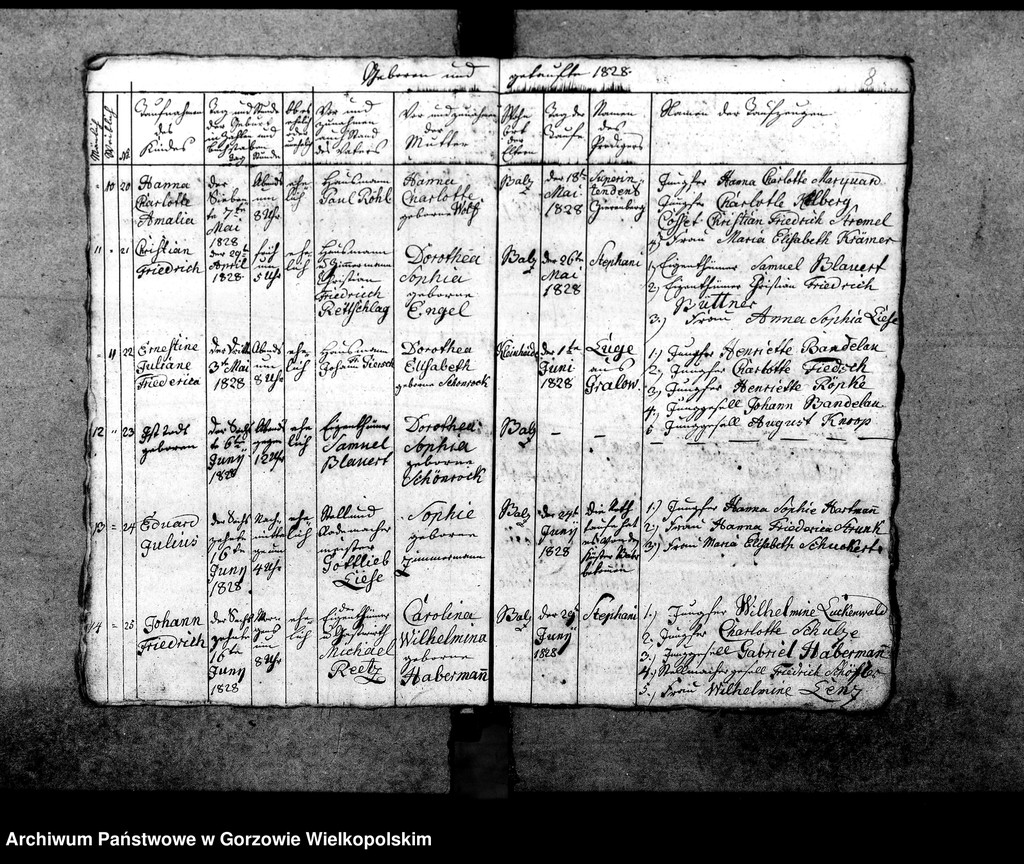 Geboren und getaufte 1828. 8
Männlich
Weiblich
No
Taufnahmen des Kindes
Tag und Stunde der Geburt in Zahlen und Buchstaben
Tag
Stunde
Vor und zunahmen und Stand des Vaters
Vor und zunahmen der Mutter
Wohn Ort des Eltern
Tag der Taufe
Namen des Predigers
Namen der Taufzeugen
" 10 20
Hanna
Charlotte
Amalia
der Sieben te 7te
Mai
1828
Abends um 8 Uhr
ehe-
lich
Hausmann
Paul Röhl
Hanna
Charlotte
geborne Wolf
Balz
der 18te
Mai
1828
Superin
tendent
Jungfer Hanna Charlotte Marquard
Jungfer Charlotte Kelberg
Cosset Christian Friedrich Stremel
4) Frau Maria Elisabeth Krämer
11 " 21
Christian
Friedrich
der 29te
April
1828
früh um 5 Uhr
ehe-
lich
Hausmann
u Zimmermann
Christian
Friedrich
Rettschlag
Dorothea
Sophia
geborne
Engel
Balz
der 26te
Mai
1828
Stephani
1, Eigenthümer Samuel Blauert
2) Eigenthümer Christian Friedrich
Büttner
3.) Frau Anna Sophia Liese
" 11 22
Ernestine
Juliane
Friederica
der Dritte
3te Mai
1828
Abends um 8 Uhr
ehe-
lich
Hausmann
Johann Fr. Giersch
Dorothea
Elisabeth
geborne Schönrock
Kleinheide
der 1te
Juni
1828
Lüge
aus
Gralow.
1.) Jungfer Henriette Bandelau
2.) Jungfer Charlotte Fiedrich
3, Jungfer Henriette Röpke
4, Junggesell Johann Bandelau
5 Junggesell August Knoop
12 " 23
Ist Tods
geboren
der Sechs
te 6te
Juny
1828
Abends gegen 12 Uhr
ehe-
lich
Eigenthümer
Samuel
Blauert
Dorothea
Sophia
geborne
Schönrock
Balz
– –
13 " 24
Eduard
Julius
der Sechs
zehnte
16te
Juny
1828
Nach-
mittags
um
4 Uhr
ehe-
lich
Stell und
Rademacher
meister
Gottlieb
Liese
Sophie
geborne
Zimmermann
Balz
der 24te
Juny
1828
die Noth
taufe hat
1) Jungfer Hanna Sophie Hartmañ
2) Frau Hanna Friederica Strunk
3) Frau Maria Elisabeth Schuckert
14 " 25
Johann
Friedrich
der Sechs
zehnte
16te
Juny
1828
Mor-
gens
um
8 Uhr
ehe-
lich
Eigenthümer
Michael
Reetz
Carolina
Wilhelmina
geborne
Habermañ
Balz
der 29te
Juny
1828
Stephani
1.) Jungfer Wilhelmine Luckenwald
2, Jungfer Charlotte Schulze
3.) Junggesell Gabriel Habermañ
4.) Stellmachergesell Friedrich Schöfler
5, Frau Wilhelmine Lenz
Archiwum Państwowe w Gorzowie Wielkopolskim